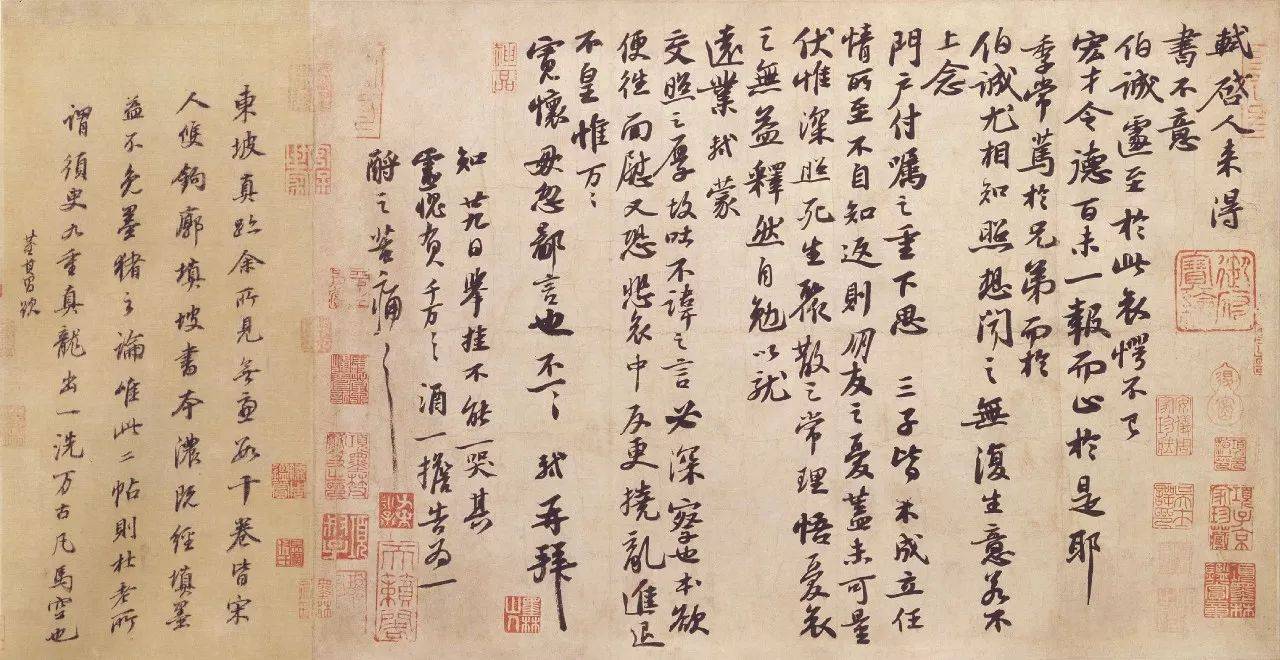 軾启人来得
書不意
伯诚遽至於此哀愕不已
宏才令德百未一報而止於是耶
季常篤於兄弟而於
伯诚尤相知照想聞之無復生意若不
上念
門戶付嘱之重下思三子皆未成立任
情所至不自知返則朋友之憂蓋未可量
伏惟深照死生聚散之常理悟憂哀
之無益釋然自勉以就
遠業軾蒙
交照之厚故吐不諱之言必深察也本欲
便往面慰又恐悲哀中反更撓亂進退
不皇惟万万
寬懷毋忽鄙言也不一一軾再拜
知廿九日舉挂不能一哭其
靈愧負千万千万酒一擔告為一
酹之苦痛苦痛
東坡真跡余所見無慮數十卷皆宋
人雙鉤廓填坡書本濃既經填墨
益不免墨豬之論唯此二帖則杜老所
謂須臾九重真龍出一洗万古凡馬空也
董其昌跋